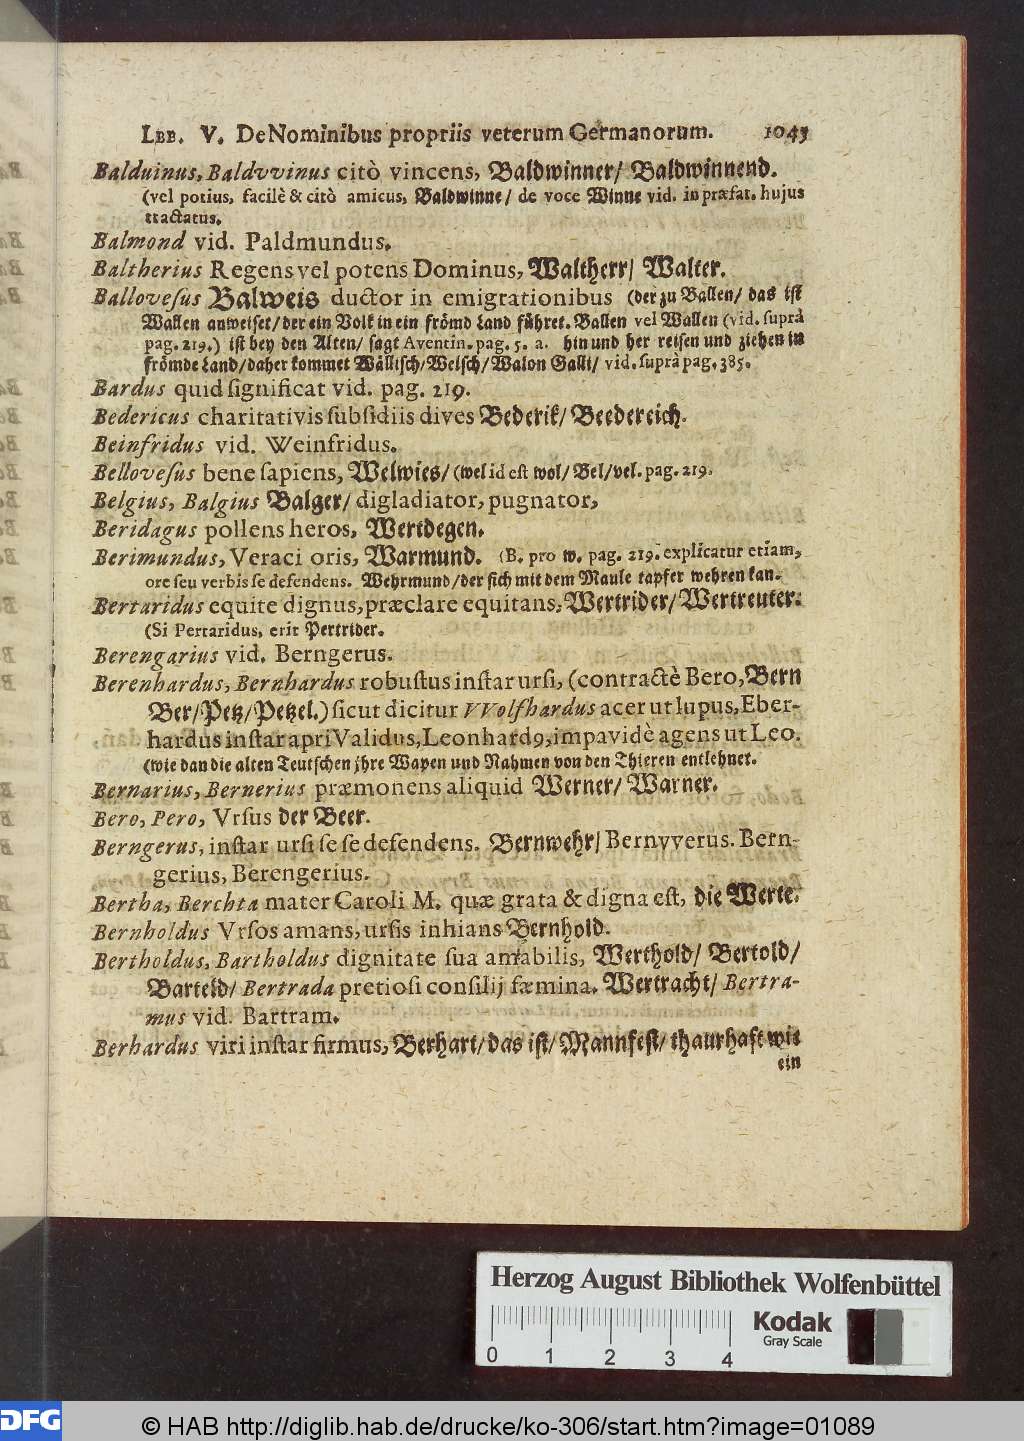 LIB. V. De Nominibus propriis veterum Germanorum. 1043
Balduinus, Baldvvinus citò vincens, Baldwinner/ Baldwinnend.
(vel potius, facilè & citò amicus, Baldwinne/ de voce Winne vid. in præfat. hujus
tractatus.
Balmond vid. Paldmundus.
Baltherius Regens vel potens Dominus, Waltherr/ Walter.
Balloveſus Balweis ductor in emigrationibus (der zu Ballen/ das iſt
Wallen anweiſet/ der ein Volk in ein frömd Land führet. Ballen vel Wallen (vid. ſuprà
pag. 219.) iſt bey den Alten/ ſagt Aventin. pag. 5. a. hin und her reiſen und ziehen in
frömde Land/ daher kommet Wälliſch/ Welſch/ Walon Galli/ vid. ſuprà pag. 385.
Bardus quid ſignificat vid. pag. 219.
Bedericus charitativis ſubſidiis dives Bederik/ Beedereich.
Beinfridus vid. Weinfridus.
Belloveſus bene ſapiens, Welwies/ (wel id eſt wol/ Bel/ vel. pag. 219.
Belgius, Balgius Balger/ digladiator, pugnator,
Beridagus pollens heros, Wertdegen.
Berimundus, Veraci oris, Warmund. (B. pro w. pag. 219. explicatur etiam,
ore ſeu verbis ſe defendens. Wehrmund/ der ſich mit dem Maule tapfer wehren kan.
Bertaridus equite dignus, præclare equitans, Wertrider/ Wertreuter.
(Si Pertaridus, erit Pertrider.
Berengarius vid. Berngerus.
Berenhardus, Bernhardus robuſtus inſtar urſi, (contractè Bero, Bern
Ber/ Petz/ Petzel.) ſicut dicitur VVolfhardus acer ut lupus, Eber-
hardus inſtar apri Validus, Leonhardꝰ, impavidè agens ut Leo.
(wie dan die alten Teutſchen jhre Wapen und Nahmen von den Thieren entlehnet.
Bernarius, Bernerius præmonens aliquid Werner/ Warner.
Bero, Pero, Vrſus der Beer.
Berngerus, inſtar urſi ſe ſe defendens. Bernwehr/ Bernvverus. Bern-
gerius, Berengerius.
Bertha, Berchta mater Caroli M. quæ grata & digna eſt, die Werte.
Bernholdus Vrſos amans, urſis inhians Bernhold.
Bertholdus, Bartholdus dignitate ſua amabilis, Werthold/ Bertold/
Barteld/ Bertrada pretioſi conſilij fæmina. Wertracht/ Bertra-
mus vid. Bartram.
Berhardus viri inſtar firmus, Berhart/ das iſt/ Mannfeſt/ thaurhaft wie
ein
Herzog August Bibliothek Wolfenbüttel
0 1 2 3 4
Kodak
Gray Scale
DFG
© HAB http://diglib.hab.de/drucke/ko-306/start.htm?image=01089